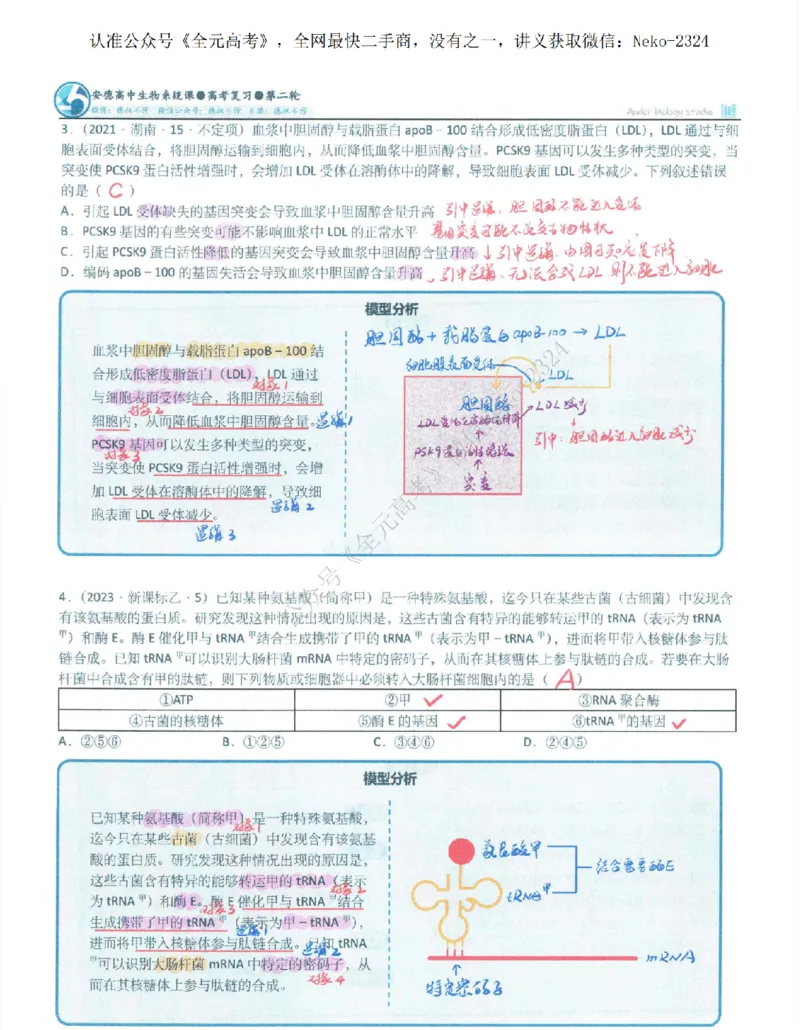 认准公众号《全元高考》，全网最快二手商，没有之一，讲义获取微信：Neko-2324
安德高中生物系统课●高考复习●第二轮
Ander biology studio
3.（2021·湖南·15·不定项）血浆中胆固醇与载脂蛋白 apoB－100 结合形成低密度脂蛋白（LDL），LDL 通过与细
胞表面受体结合，将胆固醇运输到细胞内，从而降低血浆中胆固醇含量。PCSK9 基因可以发生多种类型的突变，当
突变使 PCSK9 蛋白活性增强时，会增加 LDL 受体在溶酶体中的降解，导致细胞表面 LDL 受体减少。下列叙述错误
的是（ C ）
A．引起 LDL 受体缺失的基因突变会导致血浆中胆固醇含量升高 引中逻辑，胆固醇不能进入
B．PCSK9 基因的有些突变可能不影响血浆中 LDL 的正常水平 基因突变可能不改变生物性状
C．引起 PCSK9 蛋白活性降低的基因突变会导致血浆中胆固醇含量升高 ↓引中逻辑，由图可知应是下降
D．编码 apoB－100 的基因失活会导致血浆中胆固醇含量升高，引中逻辑，无法合成LDL，则不能进入细胞
模型分析
血浆中胆固醇与载脂蛋白 apoB－100 结
合形成低密度脂蛋白（LDL），LDL 通过
对象1
与细胞表面受体结合，将胆固醇运输到
对象2
细胞内，从而降低血浆中胆固醇含量。逻辑1
PCSK9 基因可以发生多种类型的突变，
对象3
当突变使 PCSK9 蛋白活性增强时，会增
加 LDL 受体在溶酶体中的降解，导致细
逻辑2
胞表面 LDL 受体减少。
逻辑3
胆固醇+载脂蛋白apoB-100→LDL
细胞膜表面受体
LDL
胆固醇
LDL减少
引中：胆固醇进入细胞减少
PSK9蛋白活性增强
突变
《全元高考》
4.（2023·新课标乙·5）已知某种氨基酸（简称甲）是一种特殊氨基酸，迄今只在某些古菌（古细菌）中发现含
有该氨基酸的蛋白质。研究发现这种情况出现的原因是，这些古菌含有特异的能够转运甲的 tRNA（表示为 tRNA
甲）和酶 E。酶 E 催化甲与 tRNA甲结合生成携带了甲的 tRNA甲（表示为甲－tRNA甲），进而将甲带入核糖体参与肽
链合成。已知 tRNA甲可以识别大肠杆菌 mRNA 中特定的密码子，从而在其核糖体上参与肽链的合成。若要在大肠
杆菌中合成含有甲的肽链，则下列物质或细胞器中必须转入大肠杆菌细胞内的是（ A ）
①ATP ②甲 ✓ ③RNA 聚合酶
④古菌的核糖体 ⑤酶 E 的基因 ✓ ⑥tRNA甲的基因 ✓
A．②⑤⑥ B．①②⑤ C．③④⑥ D．②④⑤
模型分析
已知某种氨基酸（简称甲）是一种特殊氨基酸，
对象1
迄今只在某些古菌（古细菌）中发现含有该氨基
酸的蛋白质。研究发现这种情况出现的原因是，
这些古菌含有特异的能够转运甲的 tRNA（表示
对象2
为 tRNA甲）和酶 E。酶 E 催化甲与 tRNA甲结合
对象3
生成携带了甲的 tRNA甲（表示为甲－tRNA甲），
逻辑1
进而将甲带入核糖体参与肽链合成。已知 tRNA
逻辑2
甲可以识别大肠杆菌 mRNA 中特定的密码子，从
对象4
而在其核糖体上参与肽链的合成。
氨基酸甲
结合需要酶E
tRNA甲
mRNA
特定密码子